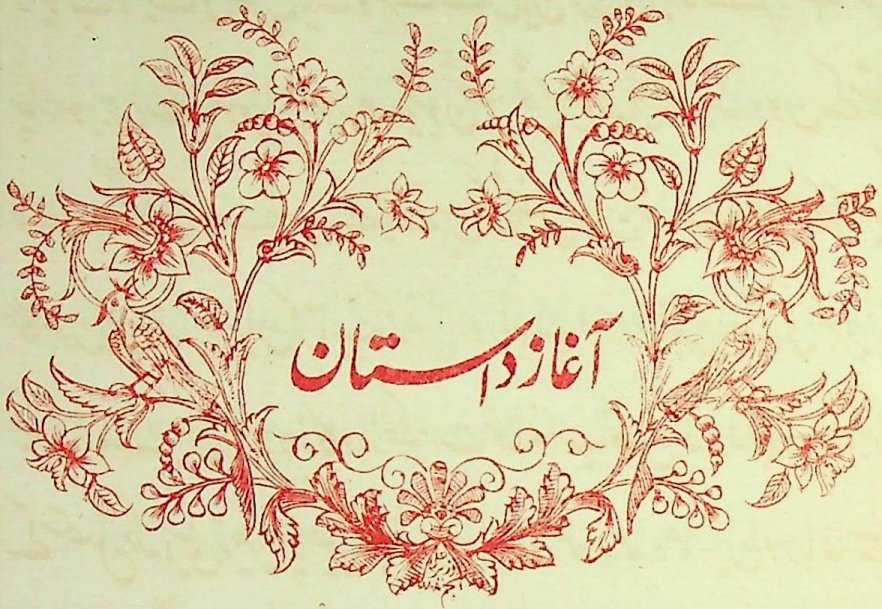 آغاز داستان